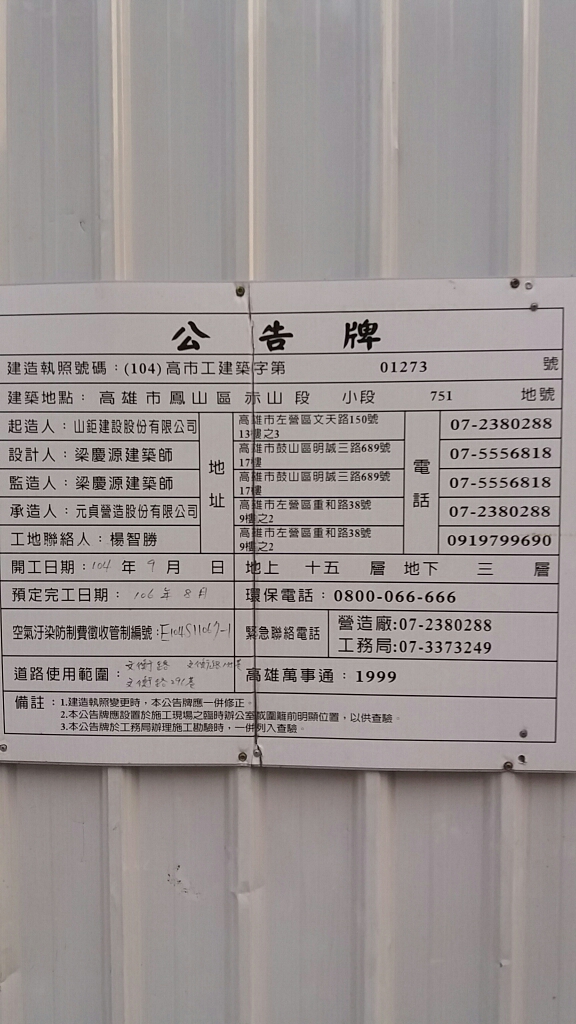 公告牌
建造執照號碼：(104)高市工建築字第 01273 號
建築地點：高雄市鳳山區 赤山 段 小段 751 地號
起造人：山鉅建設股份有限公司 地址 高雄市左營區文天路150號13樓之3 電話 07-2380288
設計人：梁慶源建築師 高雄市鼓山區明誠三路689號17樓 07-5556818
監造人：梁慶源建築師 高雄市鼓山區明誠三路689號17樓 07-5556818
承造人：元貞營造股份有限公司 高雄市左營區重和路38號9樓之2 07-2380288
工地聯絡人：楊智勝 高雄市左營區重和路38號9樓之2 0919799690
開工日期：104 年 9 月 日 地上 十五 層 地下 三 層
預定完工日期：106 年 8 月 環保電話：0800-066-666
空氣汙染防制費徵收管制編號：E104S11067-1 緊急聯絡電話 營造廠:07-2380288
工務局:07-3373249
道路使用範圍：文衡路 高雄萬事通：1999
備註：1.建造執照變更時，本公告牌應一併修正。
2.本公告牌應設置於施工現場之臨時辦公室或圍籬前明顯位置，以供查驗。
3.本公告牌於工務局辦理施工勘驗時，一併列入查驗。